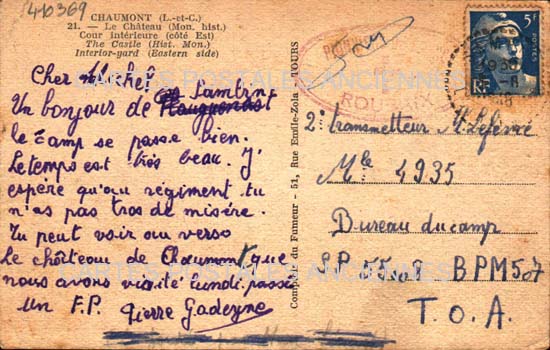 410369
CHAUMONT (L.-et-C.)
21. — Le Château (Mon. hist.)
Cour intérieure (côté Est)
The Castle (Hist. Mon.)
Interior-gard (Eastern side)
Cher
Un bonjour de
le camp se passe bien.
Le temps est très beau. J'
espère qu'au régiment tu
n'as pas tros de misère.
Tu peut voir au verso
Le château de Chaumont que
nous avons visité lundi passé
Un F.P. Pierre
Compoir du Fumeur - 51, Rue Emile-Zola TOURS
ROUBAIX
5F
POSTES
RF
2e transmetteur M. Lefèvre
Mle 4935
Bureau du camp
S.P. 55208 BPM 507
T.O.A.
CARTES POSTALES ANCIENNES
CARTES POSTALES ANCIENNES